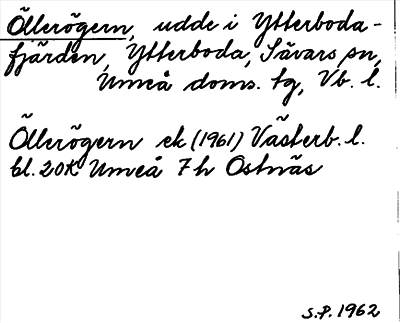 Öllerögern, udde i Ytterboda-
fjärden, Ytterboda, Sävars sn,
Umeå doms. tg, Vb. l.
Öllerögern ek (1961) Västerb. l.
bl. 20K Umeå 7h Ostnäs
S.P. 1962